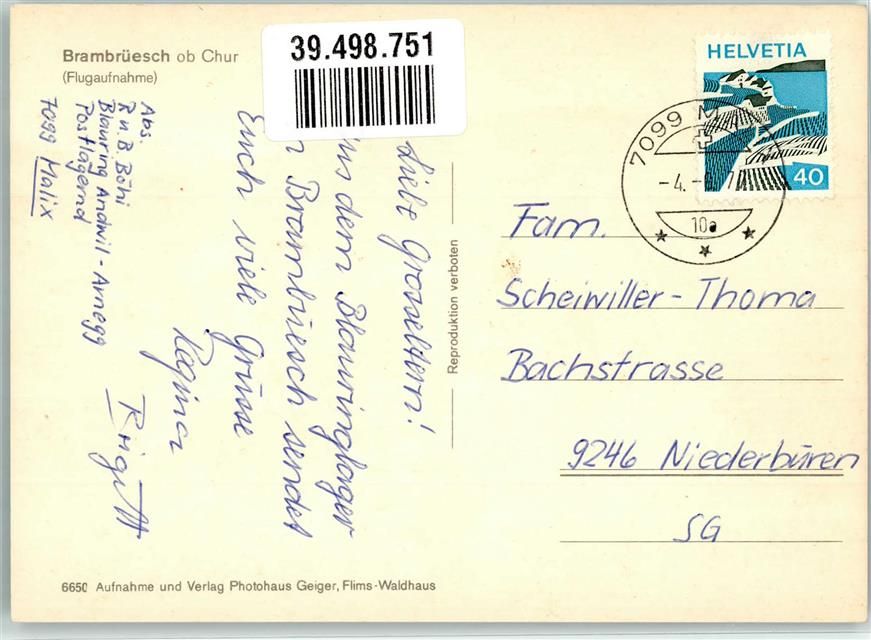 Brambrüesch ob Chur
(Flugaufnahme)
39.498.751
Abs.
R u. B. Böhi
Blauring Andwil - Arnegg
Postlagernd
7099 Malix
Liebe Grosseltern!
aus dem Blauringlager
Brambüesch sendet
Euch viele Grüsse
Regina
Brigitt
Reproduktion verboten
HELVETIA
40
7099 M
-4.-8.7
10a
Fam.
Scheiwiller-Thoma
Bachstrasse
9246 Niederbüren
SG
6650 Aufnahme und Verlag Photohaus Geiger, Flims-Waldhaus